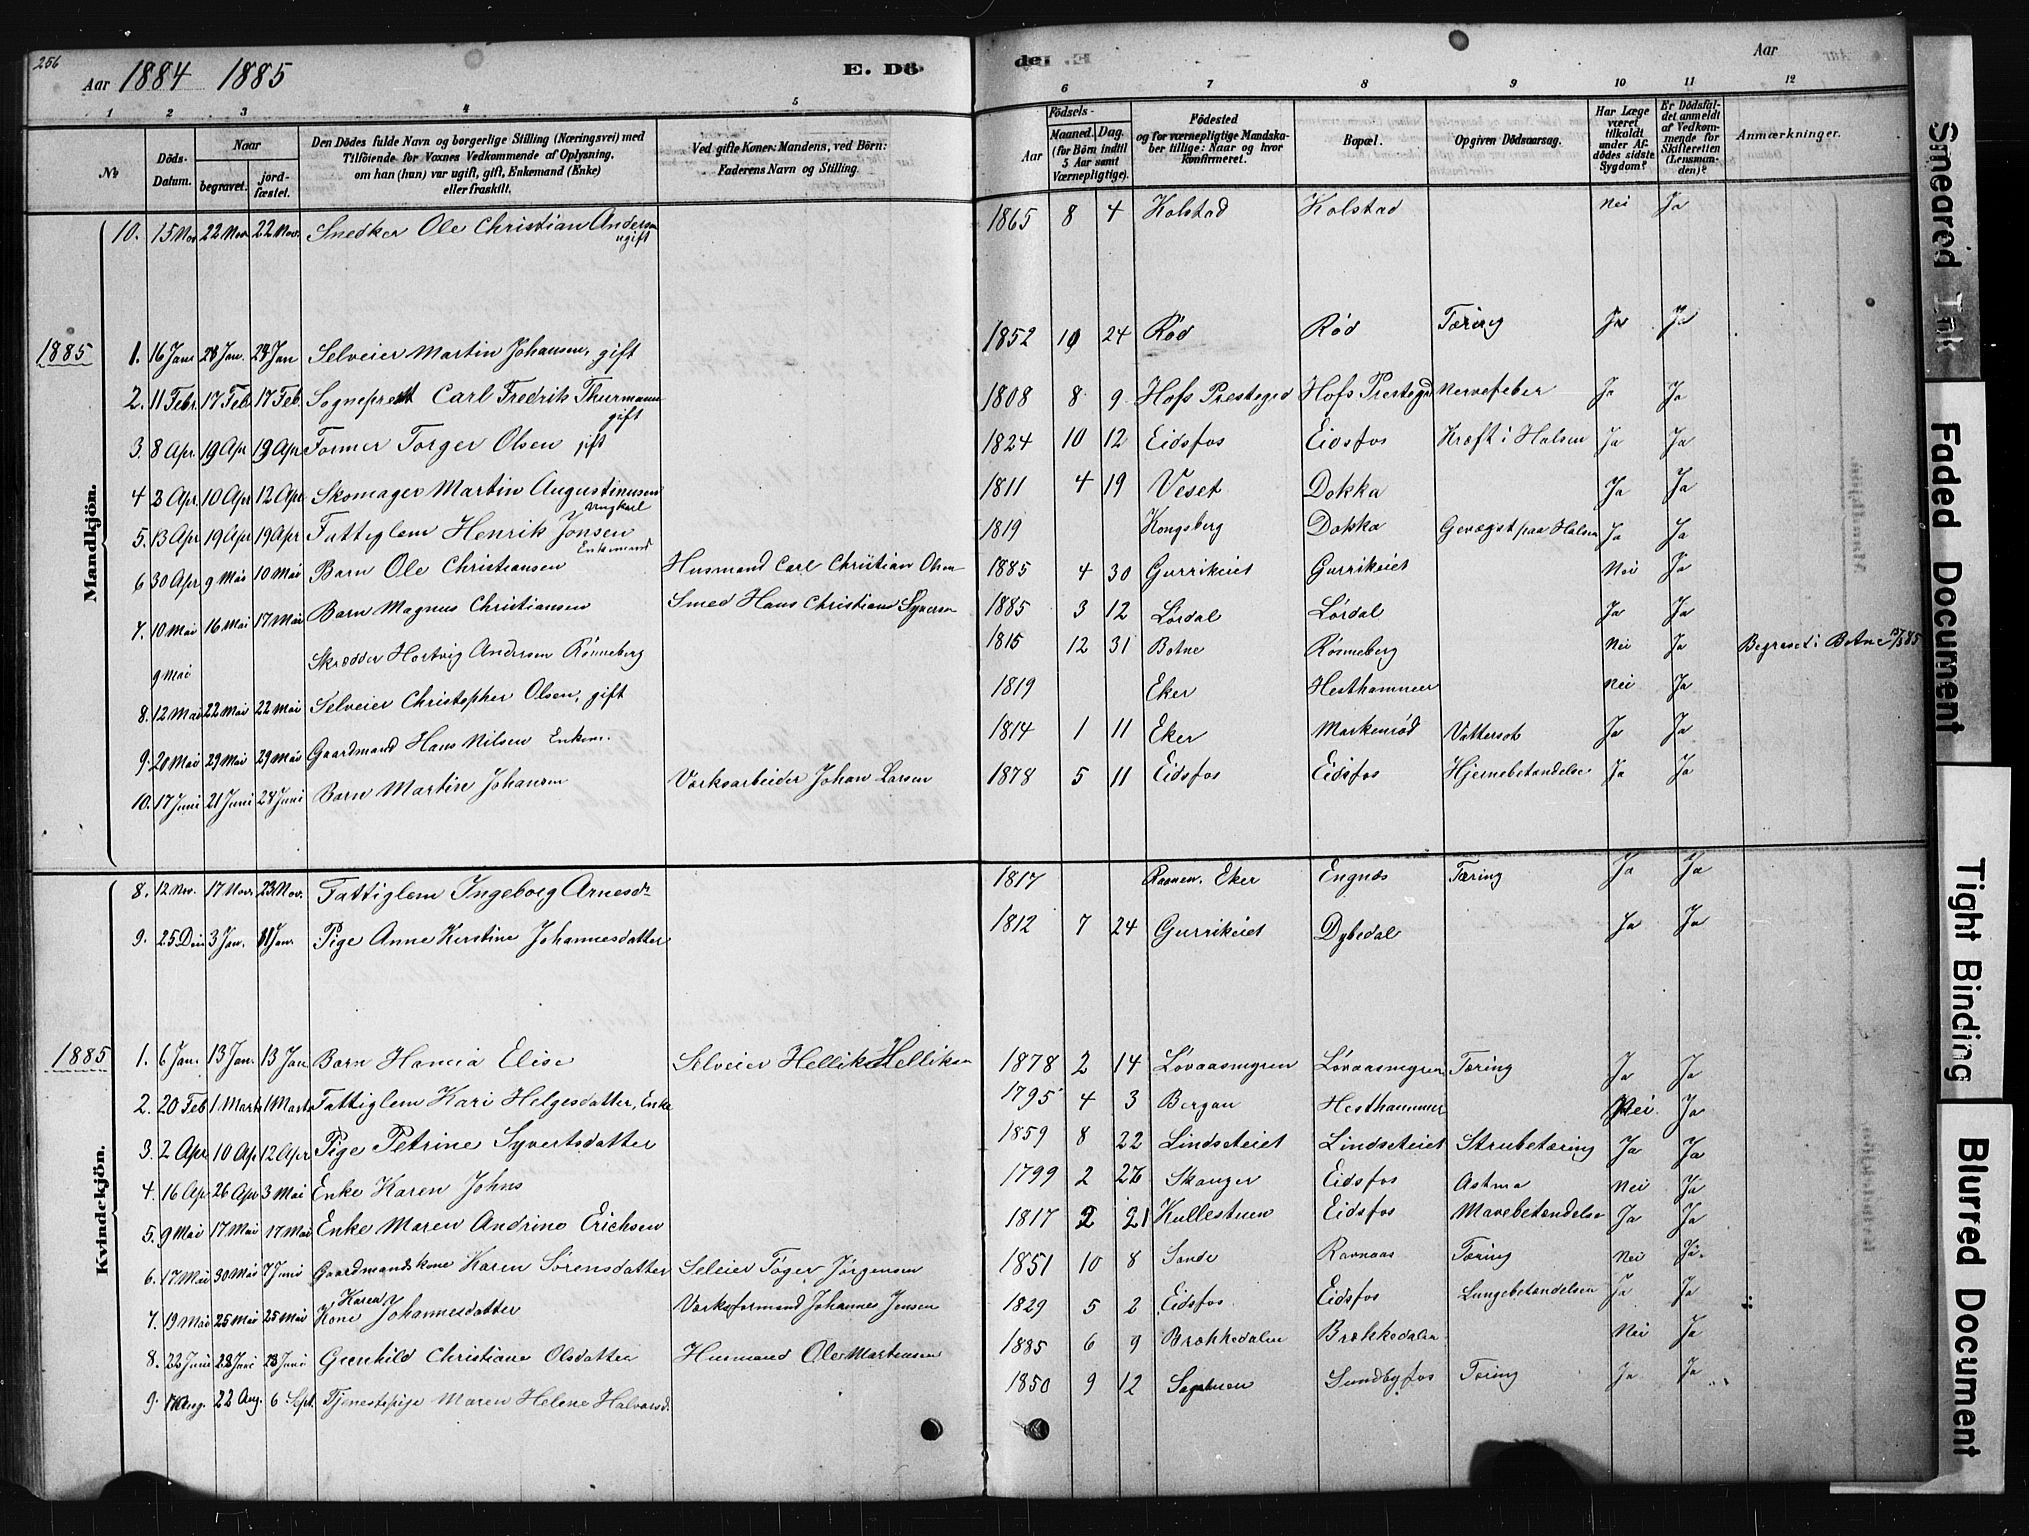 256
Aar 1884 1885
E. Dö
de. E.
Aar
1 2 3 4 5 6 7 8 9 10 11 12
No
Döds-Datum.
Naar begravet. jordfæstet.
Den Dödes fulde Navn og borgerlige Stilling (Næringsvei) med
Tilföiende for Voxnes Vedkommende af Oplysning,
om han (hun) var ugift, gift, Enkemand (Enke)
eller fraskilt.
Ved gifte Koner: Mandens, ved Börn:
Faderens Navn og Stilling.
Födsels-
Aar
Maaned. Dag.
(for Börn indtil
5 Aar samt
Værnepligtige).
Födested
og for værnepligtige Mandska-
ber tillige: Naar og hvor
konfirmeret.
Bopæl.
Opgiven Dödsaarsag.
Har Læge
været
tilkaldt
under Af-
dödes sidste
Sygdom?
Er Dödsfal-
det anmeldt
af Vedkom-
mende for
Skifteretten
(Lensman-
den)?
Anmærkninger.
Mandkjön.
10. 15 Nov 22 Nov 22 Nov. Snedker Ole Christian Andersen ugift 1865 8 4 Kolstad Kolstad Nei Ja
1885
1. 16 Jan 28 Jan. 28 Jan Selveier Martin Johansen, gift 1852 10 24 Rød Rød Tæring Ja Ja
2. 11 Febr. 17 Feb 17 Feb. Sogneprest Carl Fredrik Thurmann gift 1808 8 9 Hofs Prestegd Hofs Prestegd Nervefeber Ja Ja
3. 8 Apr. 19 Apr 19 Apr Former Torger Olsen gift 1824 10 12 Eidsfos Eidsfos Kræft i Halsen Ja Ja
4 3 Apr. 10 Apr 12 Apr Skomager Martin Augustinusen Ungkarl 1811 4 19 Veset Dokka Ja Ja
5. 13 Apr 19 Apr 19 Apr Fattiglem Henrik Jonsen Enkemand 1819 Kongsberg Dokka Gevægst paa Halsen Ja Ja
6 30 Apr. 9 Mai 10 Mai Barn Ole Christiansen Husmand Carl Christian Olsen 1885 4 30 Gurrikeiet Gurrikeiet Nei Ja
7. 10 Mai 16 Mai 17 Mai Barn Magnus Christiansen Smed Hans Christian Syversen 1885 3 12 Lördal Lördal Ja Ja
9 Mai Skrædder Hartvig Andersen Rönneberg 1815 12 31 Botne Rönneberg Nei Ja Begravet i Botne
8. 12 Mai 22 Mai 22 Mai Selveier Christopher Olsen, gift 1819 Eker Hesthammer Nei Ja
9. 20 Mai 29 Mai 29 Mai Gaardmand Hans Nilsen Enkem. 1814 1 11 Eker Markenrød Vattersot Ja Ja
10. 17 Juni 21 Juni 24 Juni Barn Martin Johansen Værksarbeider Johan Larsen 1878 5 11 Eidsfos Eidsfos Hjernebetændelse Ja Ja
Kvindekjön.
8. 12 Nov. 17 Novr 23 Nov. Fattiglem Ingeborg Arnesdr 1817 Eker Engnæs Tæring Ja Ja
9. 25 Decbr 3 Jan. 11 Jan. Pige Anne Kirstine Johannesdatter 1812 7 24 Gurrikeiet Dybedal Ja Ja
1885
1. 6 Jan. 13 Jan. 13 Jan. Barn Hanna Elise Selveier Hellik Helliksen 1878 2 14 Lövaasmyren Lövaasmyren Tæring Ja Ja
2. 20 Feb 1 Marts 1 Marts Fattiglem Kari Helgesdatter, Enke 1795 4 3 Bergan Hesthammer Nei. Ja
3. 2 Apr 10 Apr 12 Apr Pige Petrine Syvertsdatter 1859 8 22 Lindseteiet Lindseteiet Strubetæring Ja Ja
4. 16 Apr 26 Apr 3 Mai Enke Karen Johns 1799 2 26 Skanger Eidsfos Astma Nei Ja
5. 9 Mai 17 Mai 17 Mai Enke Maren Andrine Erichsen 1817 2 21 Kullestuen Eidsfos Mavebetændelse Ja Ja
6. 17 Mai 30 Mai 7 Juni Gaardmandskone Karen Sörensdatter Seleier Toger Jörgensen 1851 10 8 Sande Ravnaas Tæring Nei Ja.
7. 19 Mai 25 Mai 25 Mai Kone Karen Johannesdatter Værksformand Johannes Jensen 1829 5 2 Eidsfos. Eidsfos Lungebetændelsen Ja Ja
8. 22 Juni 28 Juni 28 Juni Gunhild Christiane Olsdatter Husmand Ole Martinsen 1885 6 9 Brækkedalen Brækkedalen Nei Ja
9. 17 Aug. 22 Aug. 6 Sept. Tjenestepige Maren Helene Halvorsd. 1850 9 12 Sagstuen Sundbyfos Tæring Ja Ja
Smeared Ink
Faded Document
Tight Binding
Blurred Document